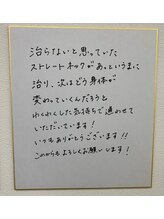 治らないと思っていた
ストレートネックがあっというまに
治り、次はどう身体が
変わっていくんだろうと
わくわくした気持ちで通わせて
いただいています!
いつもありがとうございます!!
これからもよろしくお願いします!